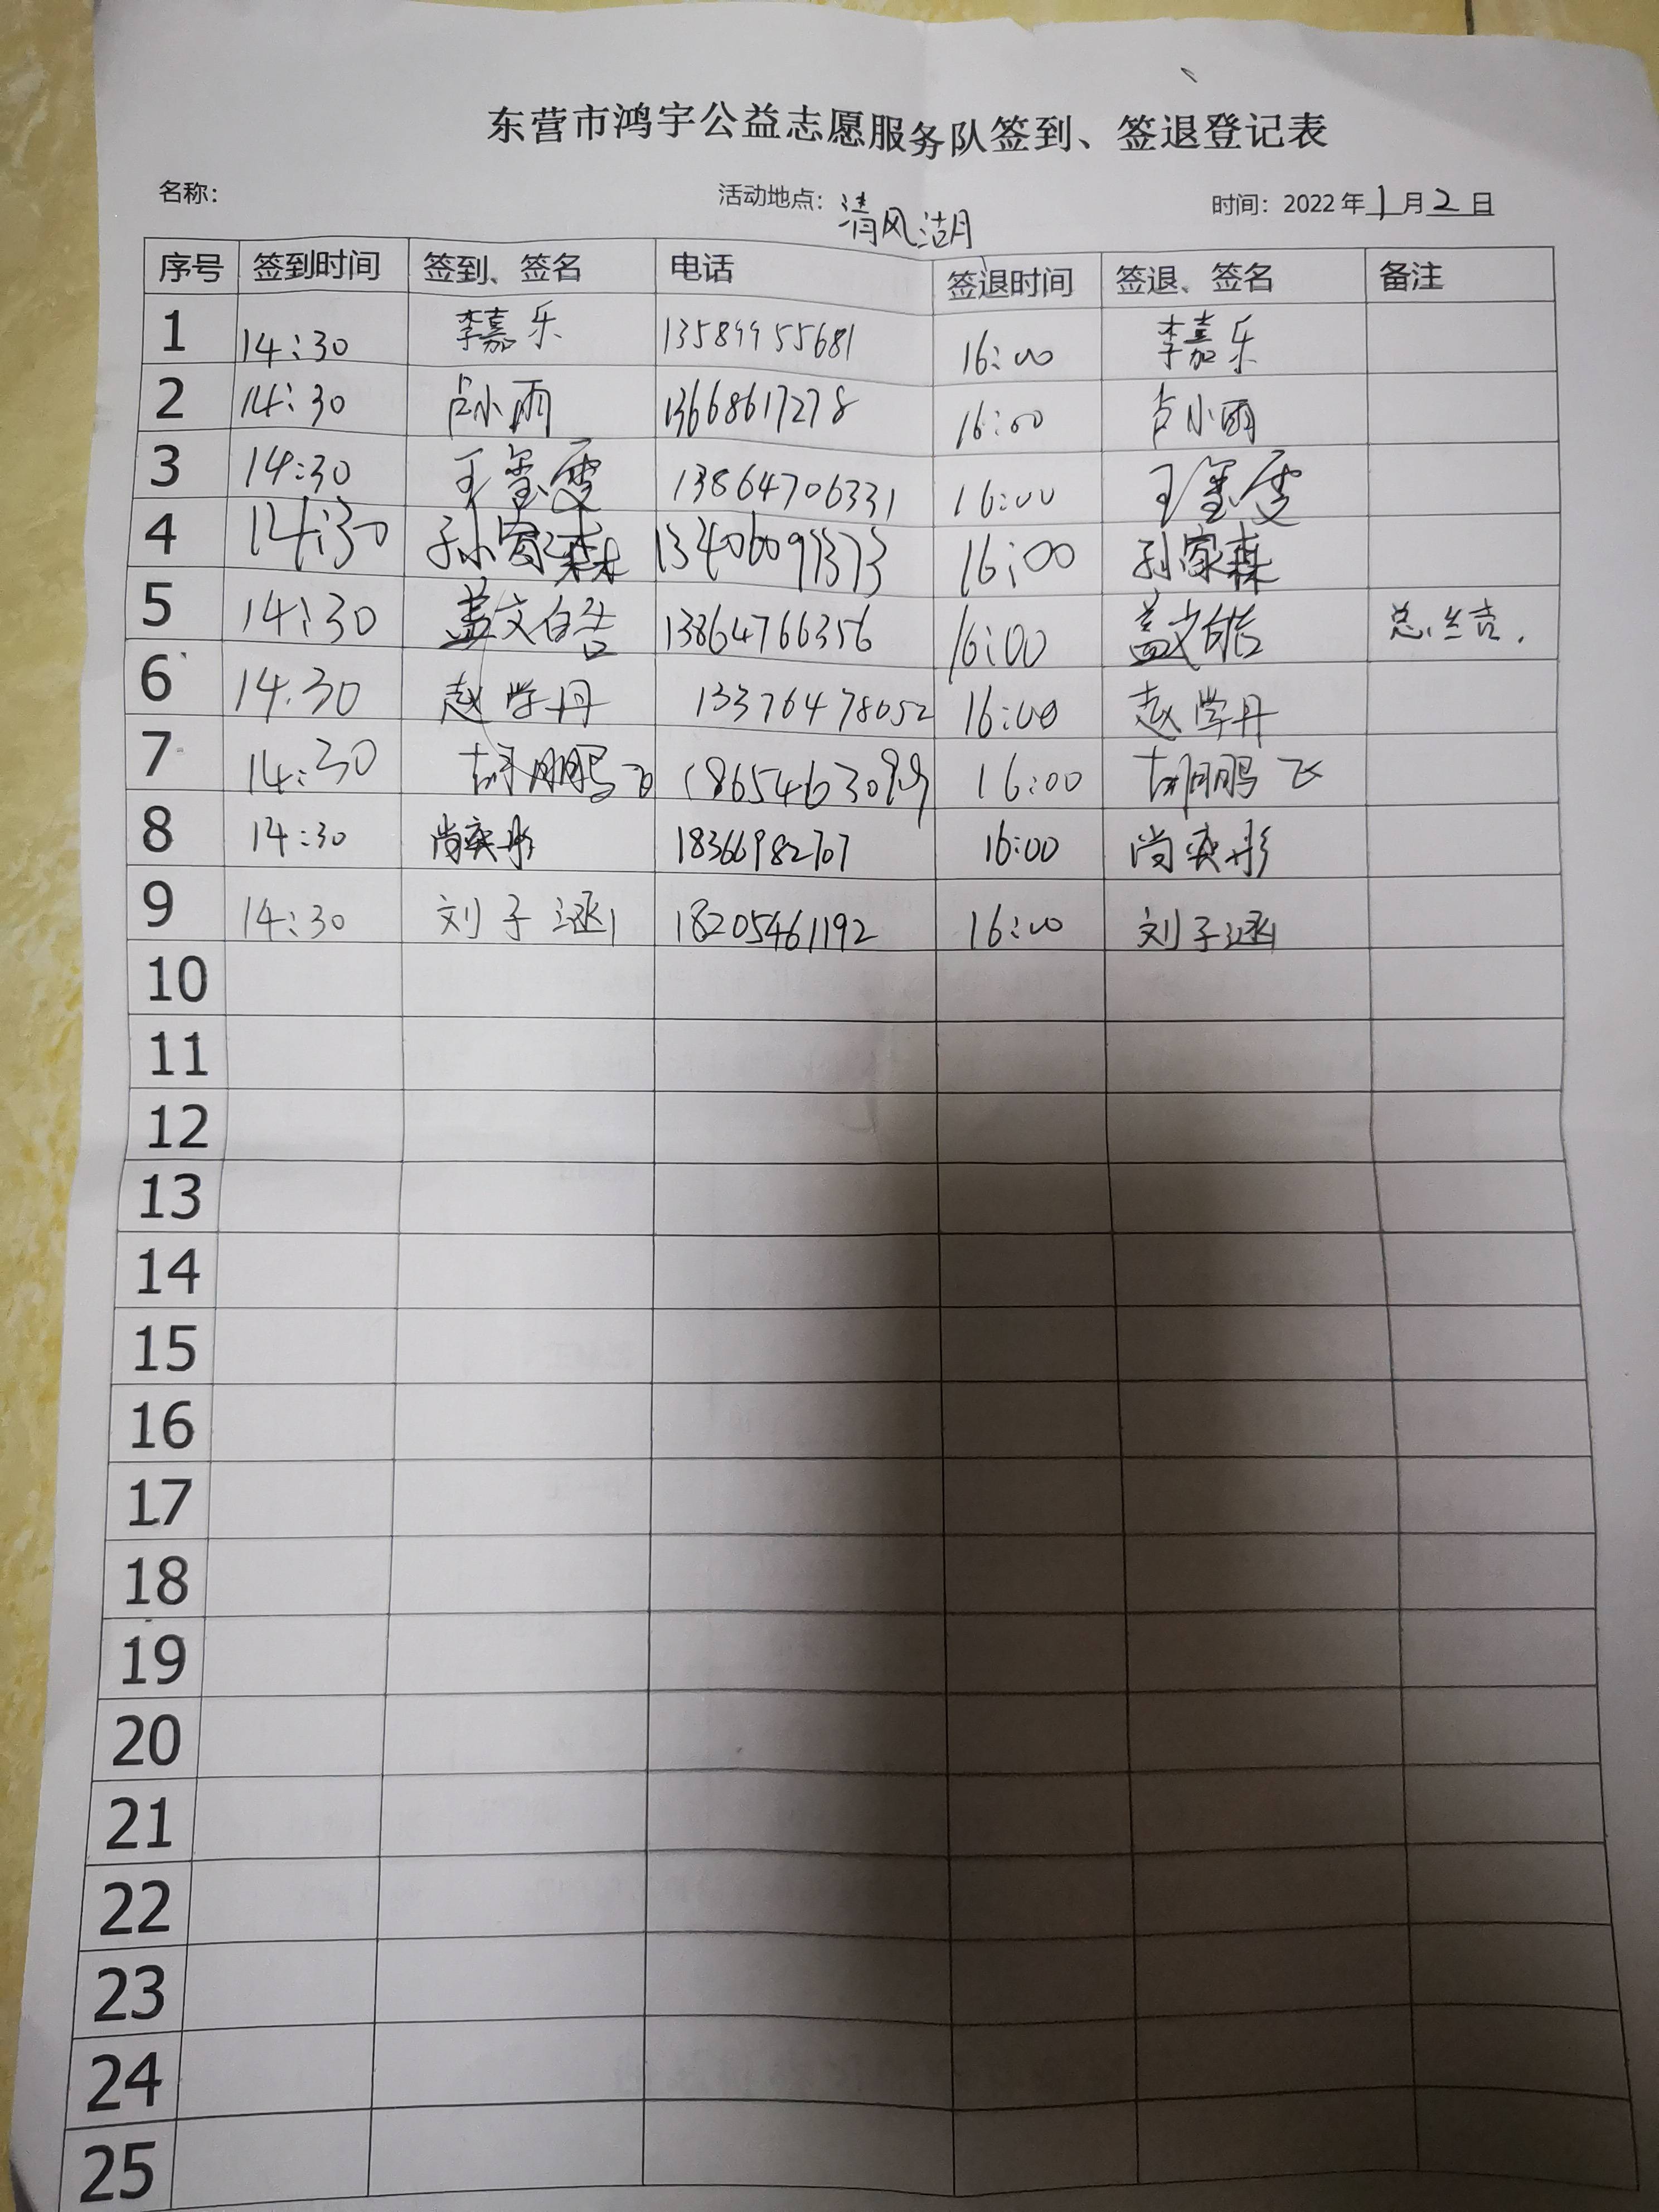 东营市鸿宇公益志愿服务队签到、签退登记表
名称： 活动地点：清风湖 时间：2022年1月2日
序号 签到时间 签到、签名 电话 签退时间 签退、签名 备注
1 14:30 李嘉乐 13589955681 16:00 李嘉乐
2 14:30 卢小雨 13668617278 16:00 卢小雨
3 14:30 王玺雯 13864706331 16:00 王玺雯
4 14:30 孙家森 13406091373 16:00 孙家森
5 14:30 盖文皓 13864766356 16:00 盖文皓 总结.
6 14:30 赵学丹 13376478052 16:00 赵学丹
7 14:30 胡鹏飞 16:00 胡鹏飞
8 14:30 尚奕彤 18366982707 16:00 尚奕彤
9 14:30 刘子涵 18205461192 16:00 刘子涵
10
11
12
13
14
15
16
17
18
19
20
21
22
23
24
25